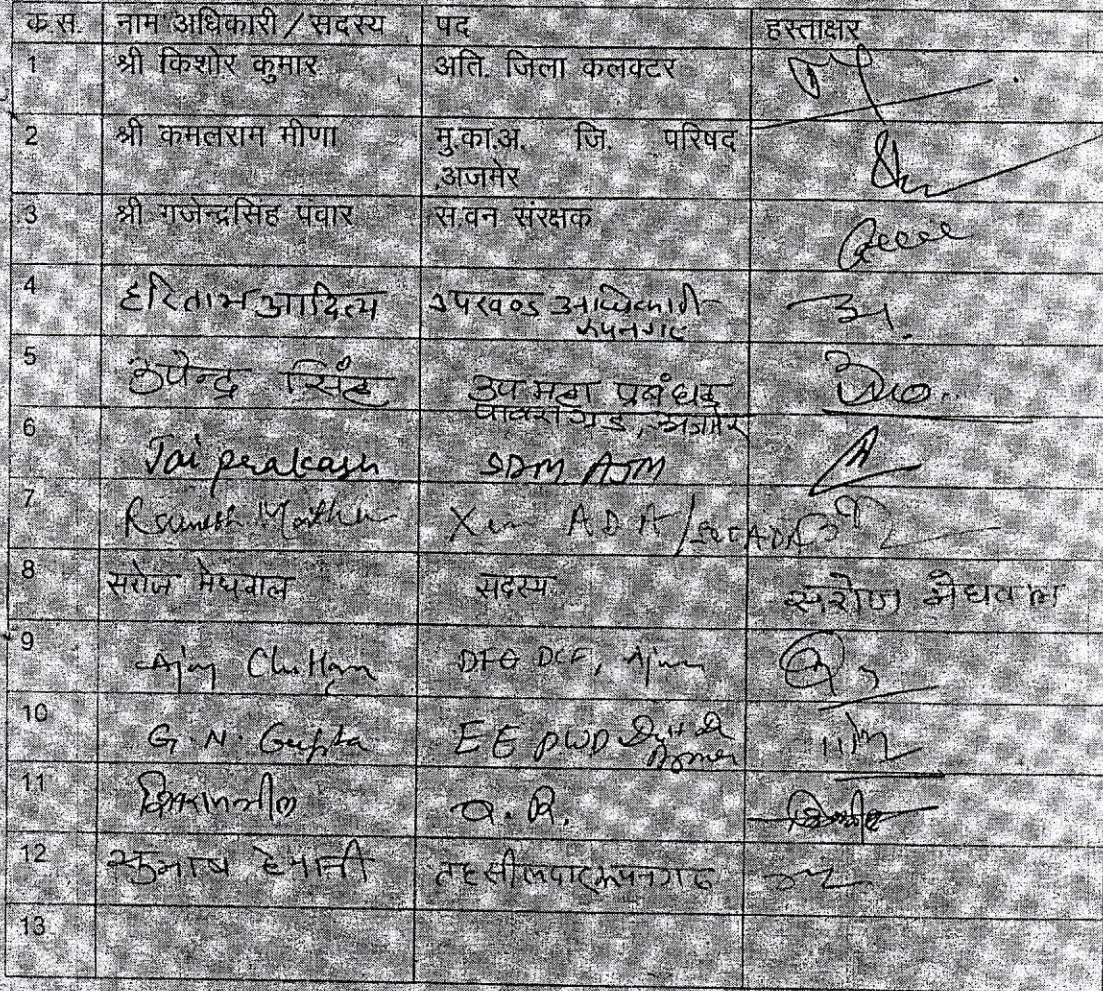 क्र.स. नाम अधिकारी / सदस्य पद हस्ताक्षर
1 श्री किशोर कुमार अति. जिला कलक्टर
2 श्री कमलराम मीणा मु.का.अ. जि. परिषद
,अजमेर
3 श्री गजेन्द्रसिह पंवार स.वन संरक्षक
4 हरिताभ आदित्य उपखण्ड अधिकारी
रूपनगढ
5 उपेन्द्र सिंह उप महा प्रबंधक
पावरग्रिड, अजमेर
6 Jai perakash SDM AJM
7 Ramesh Mathur Xen ADA
8 सरोज मेघवाल सदस्य सरोज मेघवाल
9 Ajay DCF,
10 G. N. Gupta EE PWD
11
12 सुभाष तहसीलदार रूपनगढ
13